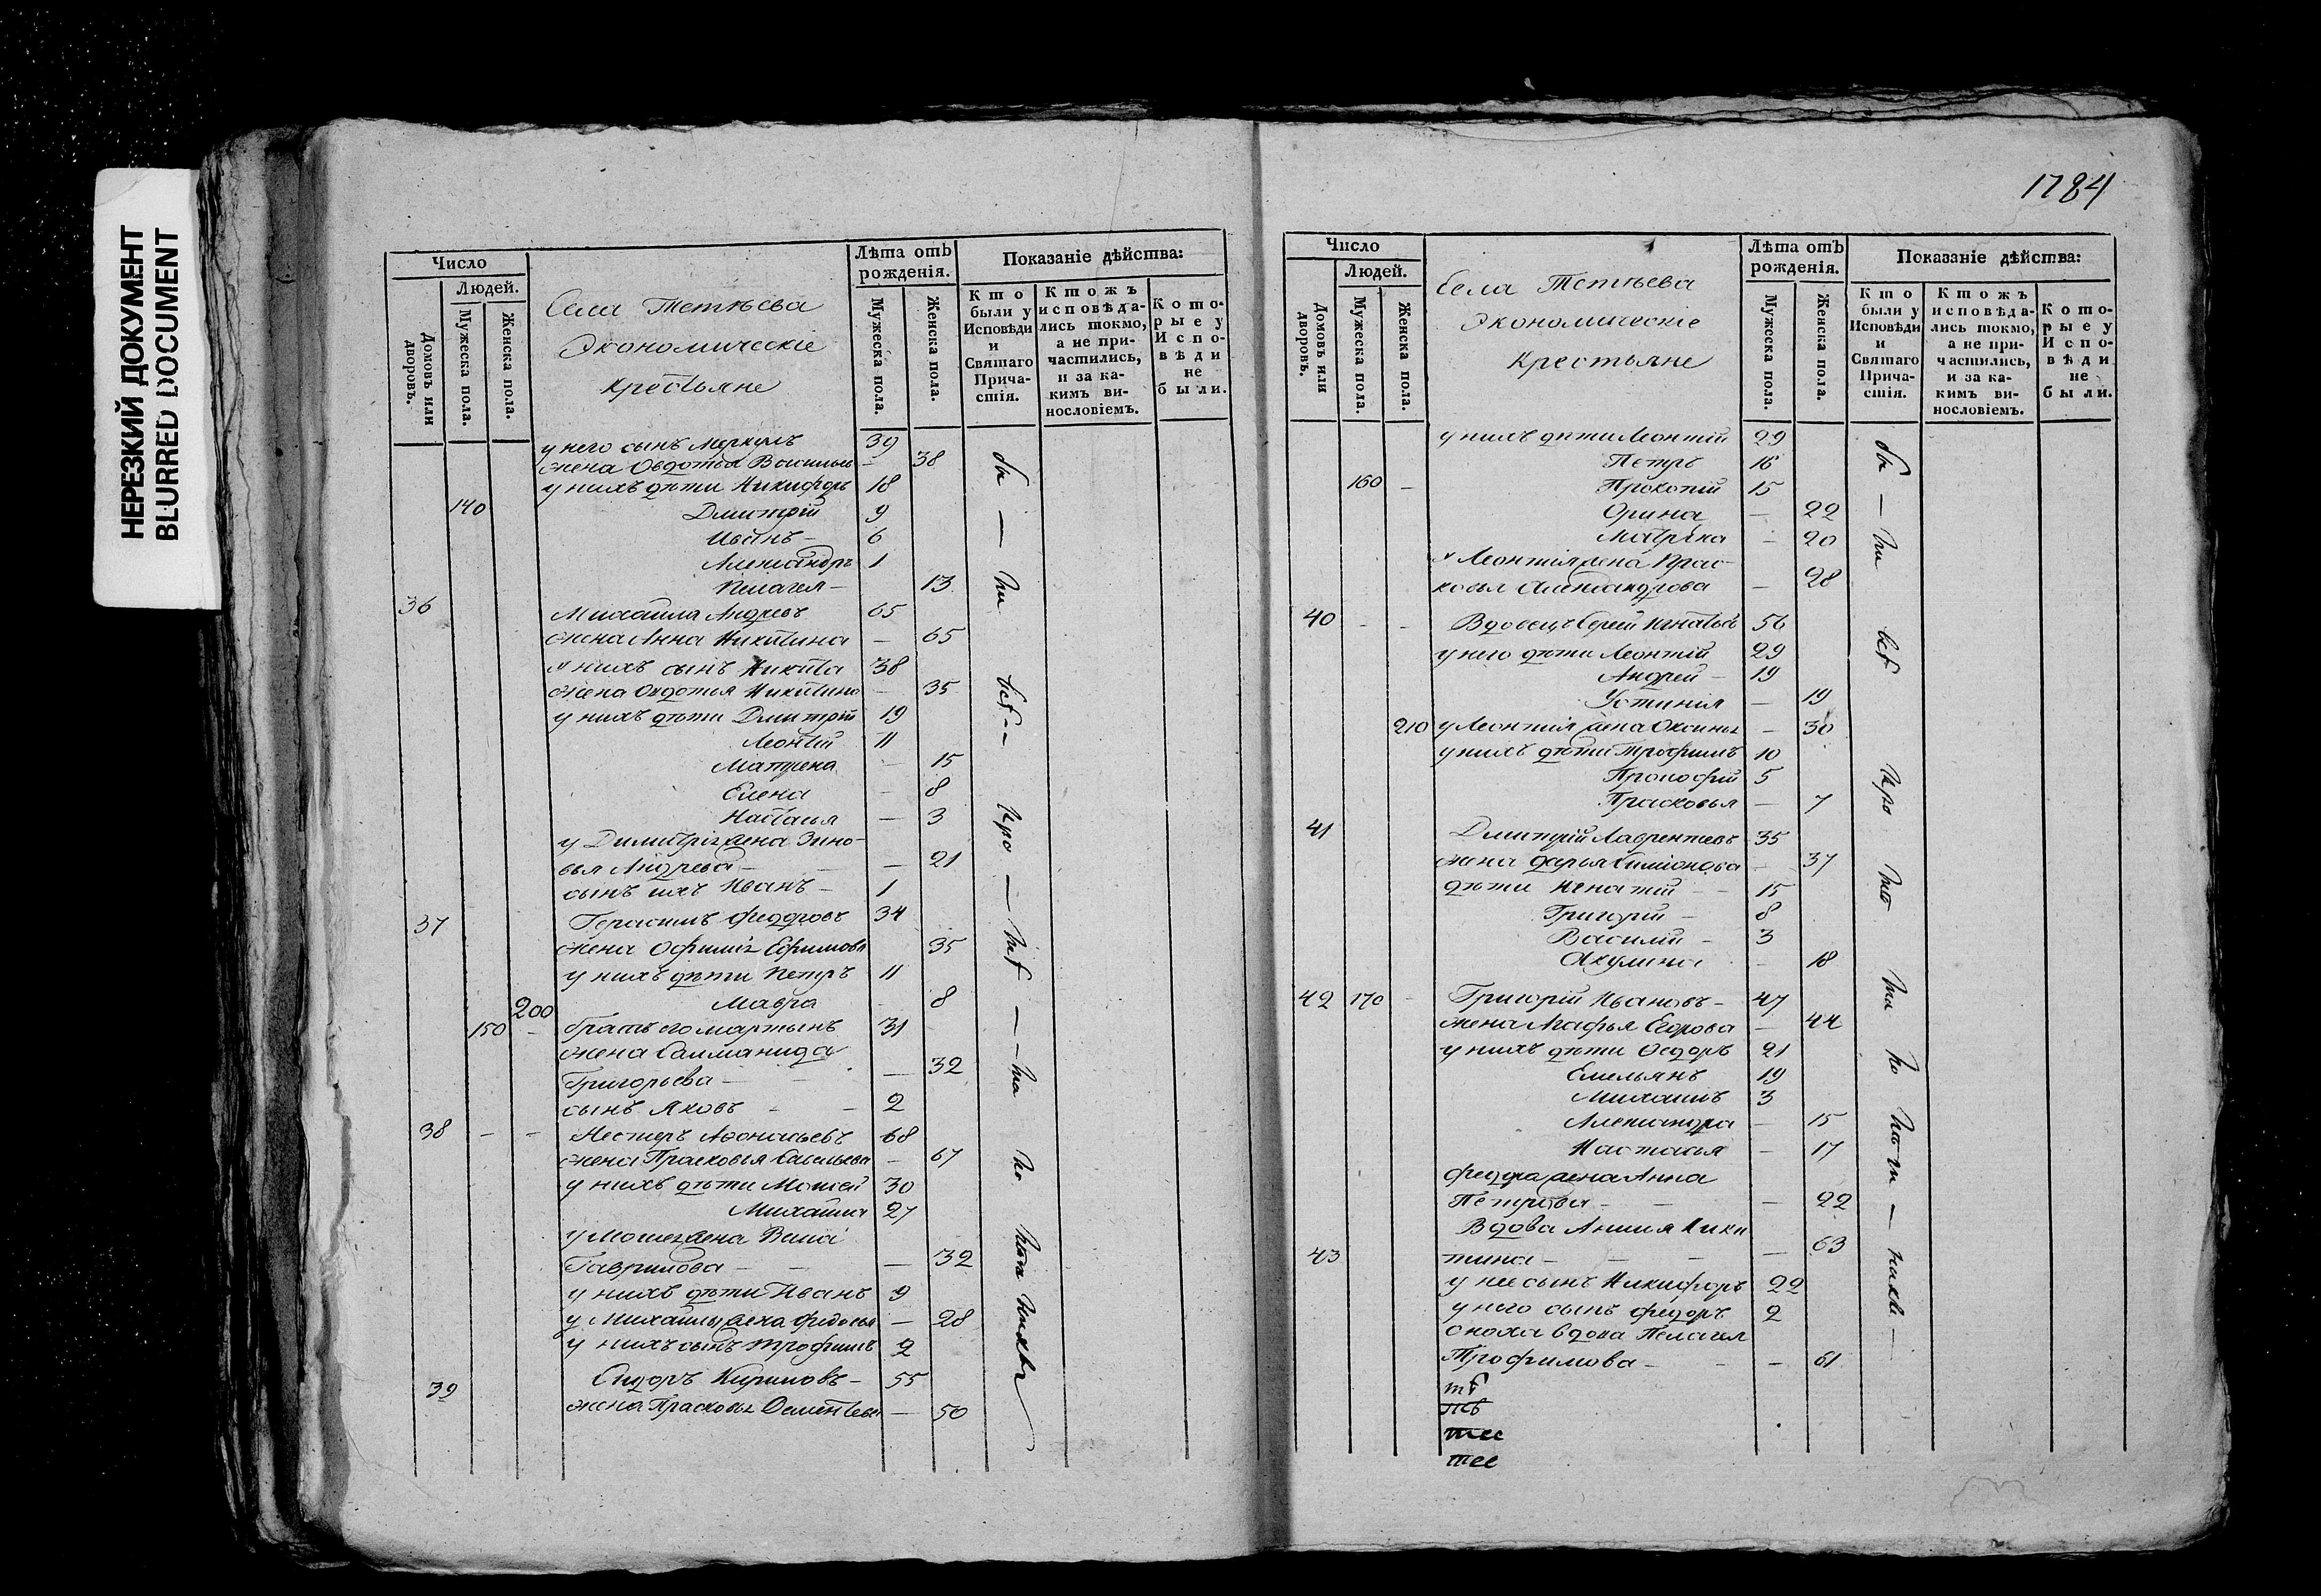 НЕРЕЗКИЙ ДОКУМЕНТ
BLURRED DOCUMENT
Число
Людей.
Домовъ или дворовъ.
Мужеска пола.
Женска пола.
Села Тетѣева
Экономическіе
крестьяне
Лѣта отъ рожденія.
Мужеска пола.
Женска пола.
Показаніе дѣйства:
Кто были у Исповѣди и Святаго Причастія.
Ктожъ исповѣдались токмо, а не причастились, и за какимъ винословіемъ.
Которые у Исповѣди не были.
у него сынъ Меркулъ 39
жена Овдотья Васильева — 38
у нихъ дѣти Никифоръ 18
140 Дмитрій 9
Иванъ — 6
Александръ 1
Пелагея — 13
36 Михаила Андреевъ 65
жена Анна Никитина — 65
у нихъ сынъ Никита 38
жена Овдотья Никитина — 35
у нихъ дѣти Дмитрій 19
Леонтій 11
Матрена — 15
Елена — 8
Настасья — 3
у Димитрія жена Зино-
вья Андреева — — 21
сынъ ихъ Иванъ — 1
37 Герасимъ Федоровъ 34
жена Офимія Ефимова 35
у нихъ дѣти Петръ 11
200 Мавра — 8
150 — братъ его Мартынъ 31
жена Саломанида
Григорьева — — 32
сынъ Яковъ — — 2
38 — — Нестеръ Афонасьевъ 68
жена Прасковья Савельева — 67
у нихъ дѣти Моисей 30
Михаила 27
у Моисея жена
Гаврилова — — 32
у нихъ дѣти Иванъ 9
у Михайлы жена Федосья — 28
у нихъ сынъ Трофимъ 2
39 Сидоръ Кириловъ — 55
жена Прасковья — 50
бы — ли всѣ —
1784
Число
Людей.
Домовъ или дворовъ.
Мужеска пола.
Женска пола.
Села Тетѣева
Экономическіе
Крестьяне
Лѣта отъ рожденія.
Мужеска пола.
Женска пола.
Показаніе дѣйства:
Кто были у Исповѣди и Святаго Причастія.
Ктожъ исповѣдались токмо, а не причастились, и за какимъ винословіемъ.
Которые у Исповѣди не были.
у нихъ дѣти Леонтій 29
Петръ 16
160 — Прокопій 15
Орина — 22
Матрена — 20
у Леонтія жена Прас-
ковья Александрова — 28
40 — — Вдовецъ Сергей Игнатьевъ 56
у него дѣти Леонтій 29
Андрей — 19
Устинія — 19
210 у Леонтія жена Оксинья — 30
у нихъ дѣти Трофимъ 10
Прокофій 5
Прасковья — 7
41 Дмитрій Лаврентьевъ 35
жена Дарья Симіонова — 37
дѣти Игнатій — 15
Григорій — 8
Василій — 3
Акулина — 18
42 170 — Григорій Ивановъ — 47
жена Агафья Егорова — 44
у нихъ дѣти Ѳедоръ 21
Емельянъ 19
Михаилъ 3
Александра — 15
Настасья — 17
Федора жена Анна
Петрова — — 22
Вдова Анисія Ники
43 тина — — — 63
у нее сынъ Никифоръ 22
у него сынъ Федоръ 2
сноха вдова Пелагея
Трофимова — — 61
бы — ли всѣ